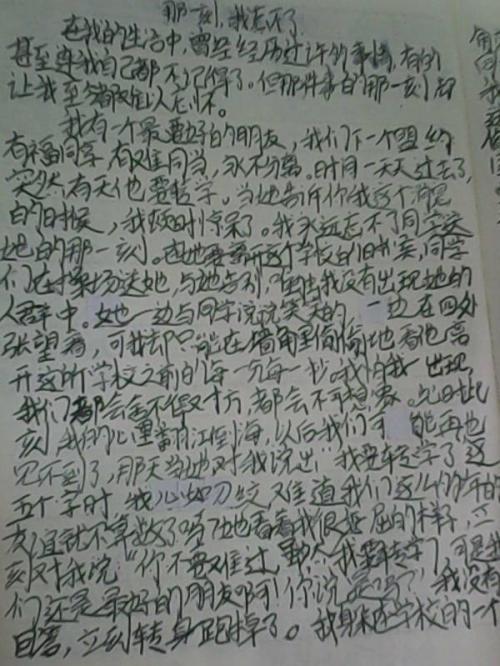 那一刻,我忘不了
在我的生活中,曾经经历过许多事情,有的
甚至连我自己都不记得了。但那件事的那一刻却
让我至今都难以忘怀。
我有一个最要好的朋友,我们下一个盟约
有福同享有难同当,永不分离。时间一天天过去了,
突然有天他要转学。当她告诉你我这个消息
的时候,我顿时惊呆了。我永远忘不了同学送
她的那一刻。在她要离开这个学校的时候,同学
们在操场送她,与她告别,唯独我没有出现她的
人群中。她一边与同学说说笑笑的,一边在四处
张望着,可我却只能在墙角里偷偷地看他离
开这所学校之前的每一分每一秒。我怕我一出现,
我们都会舍不得对方,都会不可想象。此时此
刻我的心里翻江倒海,以后我们可能再也
见不到了,那天当她对我说出"我要转学了"这
五个字时我心如刀绞难道我们这么多年的
友谊就不算数了吗?她看着我很委屈的样子,立
刻对我说"你不要难过,虽然我要转学了,可是我
们还是最好的朋友啊!你说是吗?"我没有
回答,立刻转身跑掉了。我躲在学校的一个